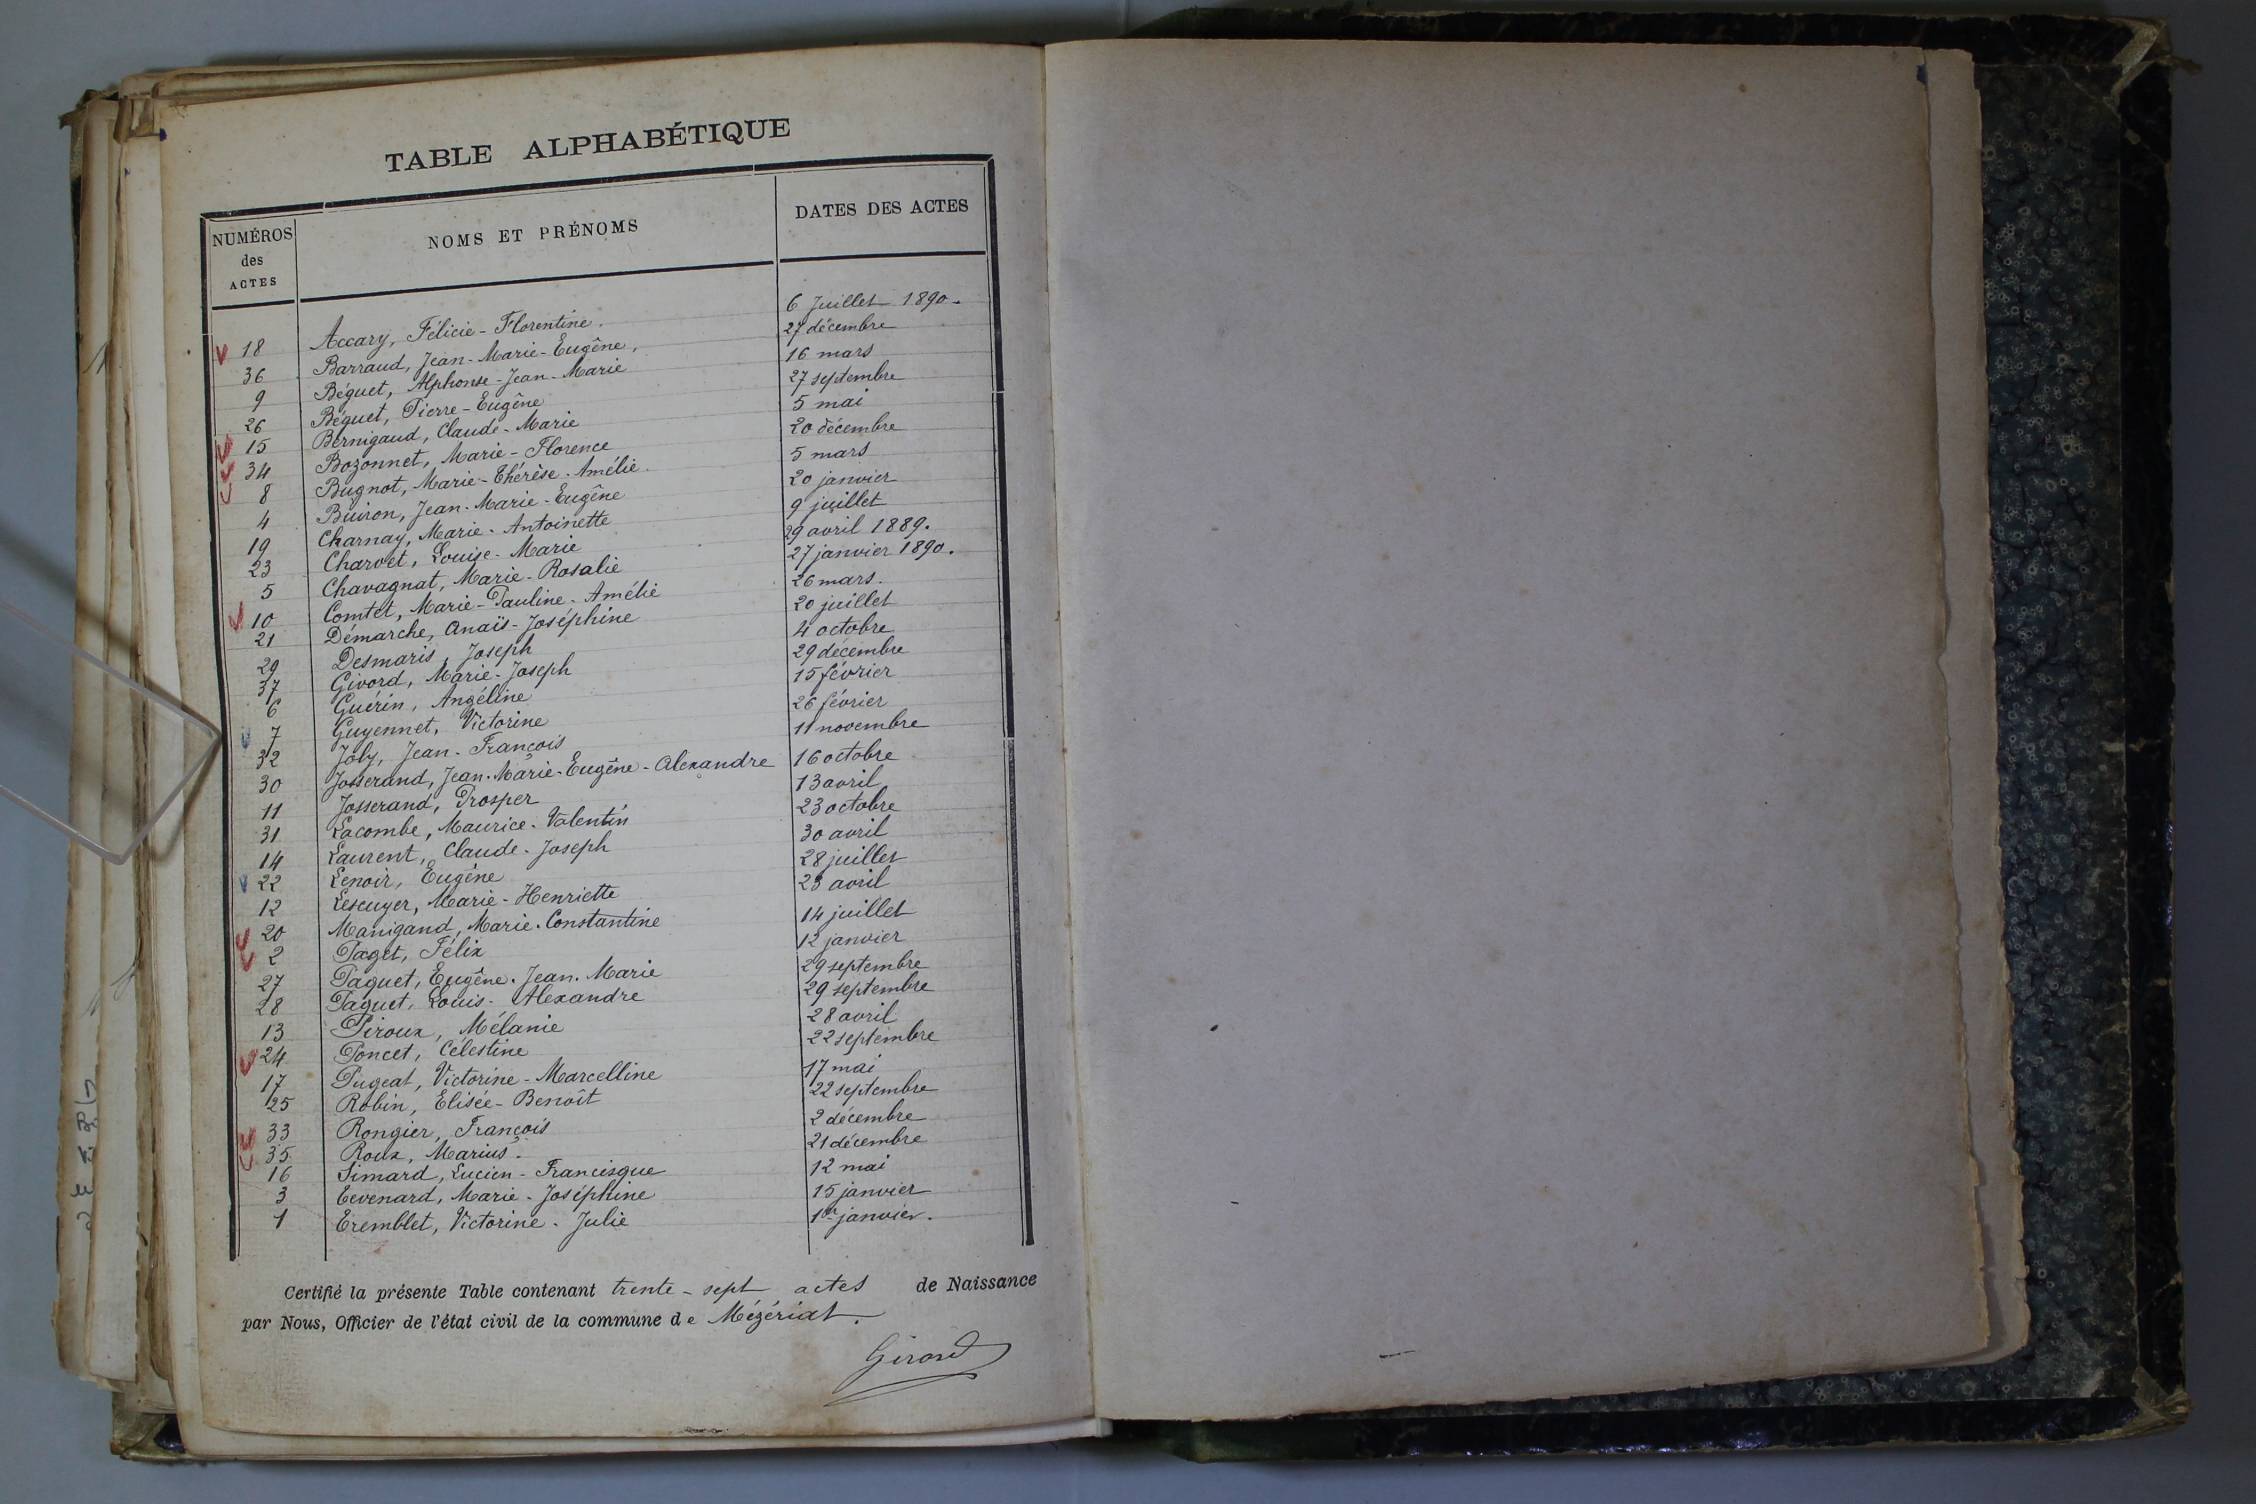 TABLE ALPHABÉTIQUE
NUMÉROS des ACTES NOMS ET PRÉNOMS DATES DES ACTES
18 Accary, Félicie-Florentine. 6 Juillet 1890.
36 Barraud, Jean-Marie-Eugène, 27 décembre
9 Béguet, Alphonse-Jean-Marie 16 mars
26 Béguet, Pierre-Eugène 27 septembre
15 Bernigaud, Claude-Marie 5 mai
34 Bozonnet, Marie-Florence 20 décembre
8 Bugnot, Marie-Thérèse-Amélie. 5 mars
4 Buiron, Jean-Marie-Eugène 20 janvier
19 Charnay, Marie-Antoinette 9 juillet
23 Charvet, Louise-Marie 29 avril 1889.
5 Chavagnat, Marie-Rosalie 27 janvier 1890.
10 Comtet, Marie-Pauline-Amélie 26 mars.
21 Démarche, Anaïs-Joséphine 20 juillet
29 Desmaris, Joseph 4 octobre
37 Givord, Marie-Joseph 29 décembre
6 Guérin, Angéline 15 février
7 Guyennet, Victorine 26 février
32 Joly, Jean-François 11 novembre
30 Josserand, Jean-Marie-Eugène-Alexandre 16 octobre
11 Josserand, Prosper 13 avril
31 Lacombe, Maurice-Valentin 23 octobre
14 Laurent, Claude-Joseph 30 avril
22 Lenoir, Eugène 28 juillet
12 Lescuyer, Marie-Henriette 23 avril
20 Manigand, Marie-Constantine 14 juillet
2 Paget, Félix 12 janvier
27 Paquet, Eugène-Jean-Marie 29 septembre
28 Paquet, Louis-Alexandre 29 septembre
13 Piroux, Mélanie 28 avril
24 Poncet, Célestine 22 septembre
17 Pugeat, Victorine-Marcelline 17 mai
25 Robin, Elisée-Benoît 22 septembre
33 Rongier, François 2 décembre
35 Roux, Marius. 21 décembre
16 Simard, Lucien-Francisque 12 mai
3 Tevenard, Marie-Joséphine 15 janvier
1 Tremblet, Victorine-Julie 1er janvier.
Certifié la présente Table contenant trente-sept actes de Naissance
par Nous, Officier de l'état civil de la commune de Mézériat.
Girard